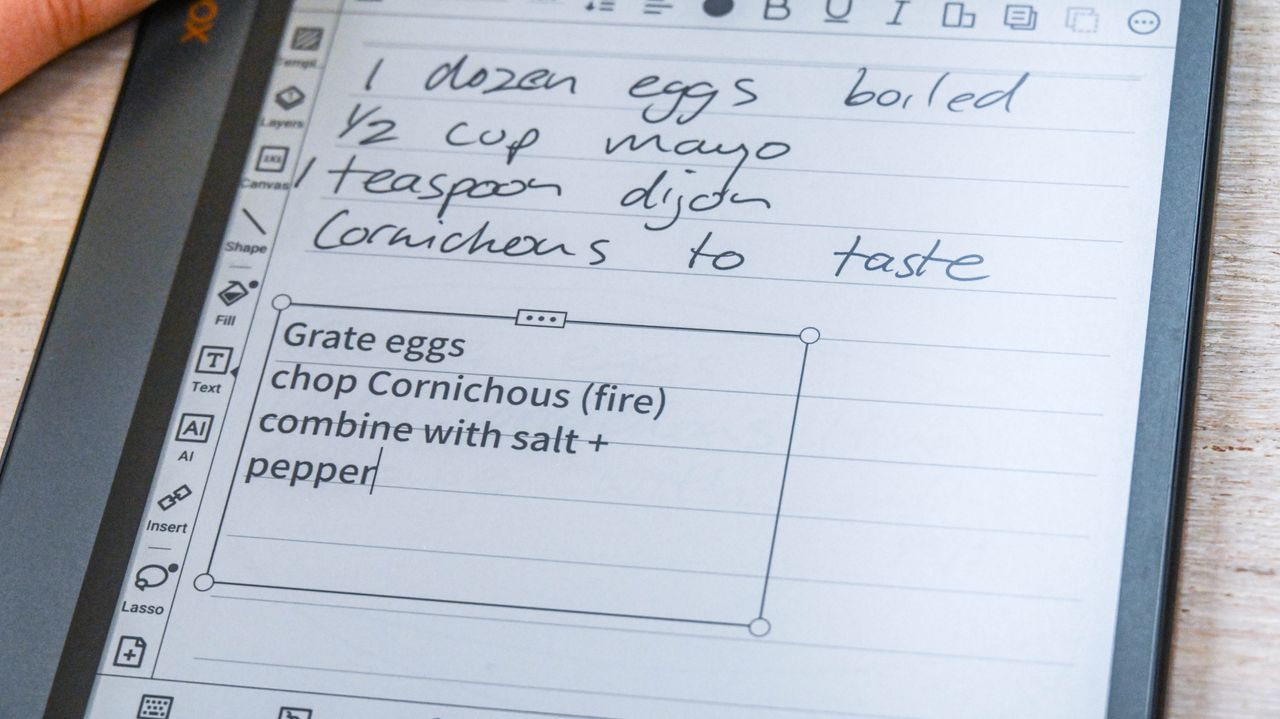 B U I
Templ.
Layers
Canvas
Shape
Fill
Text
AI
AI
Insert
Lasso
1 dozen eggs boiled
1/2 cup mayo
1 teaspoon dijon
Cornichons to taste
Grate eggs
chop Cornichous (fire)
combine with salt +
pepper